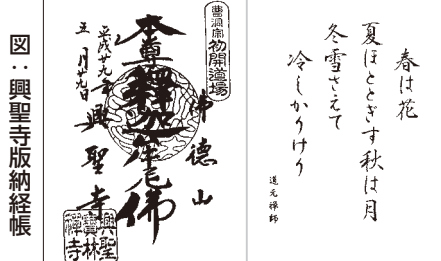 春は花
夏ほとゝぎす秋は月
冬雪さえて
冷しかりけり
道元禅師
曹洞宗
初開道場
佛徳山
本尊釋迦牟尼佛
興聖寺
平成廿九年
五月廿九日
興聖
寳林
禅寺
図：興聖寺版納経帳